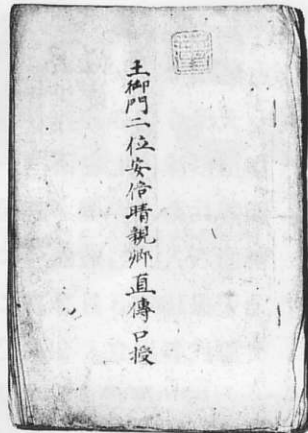 土御門二位安倍晴親卿直傳口授